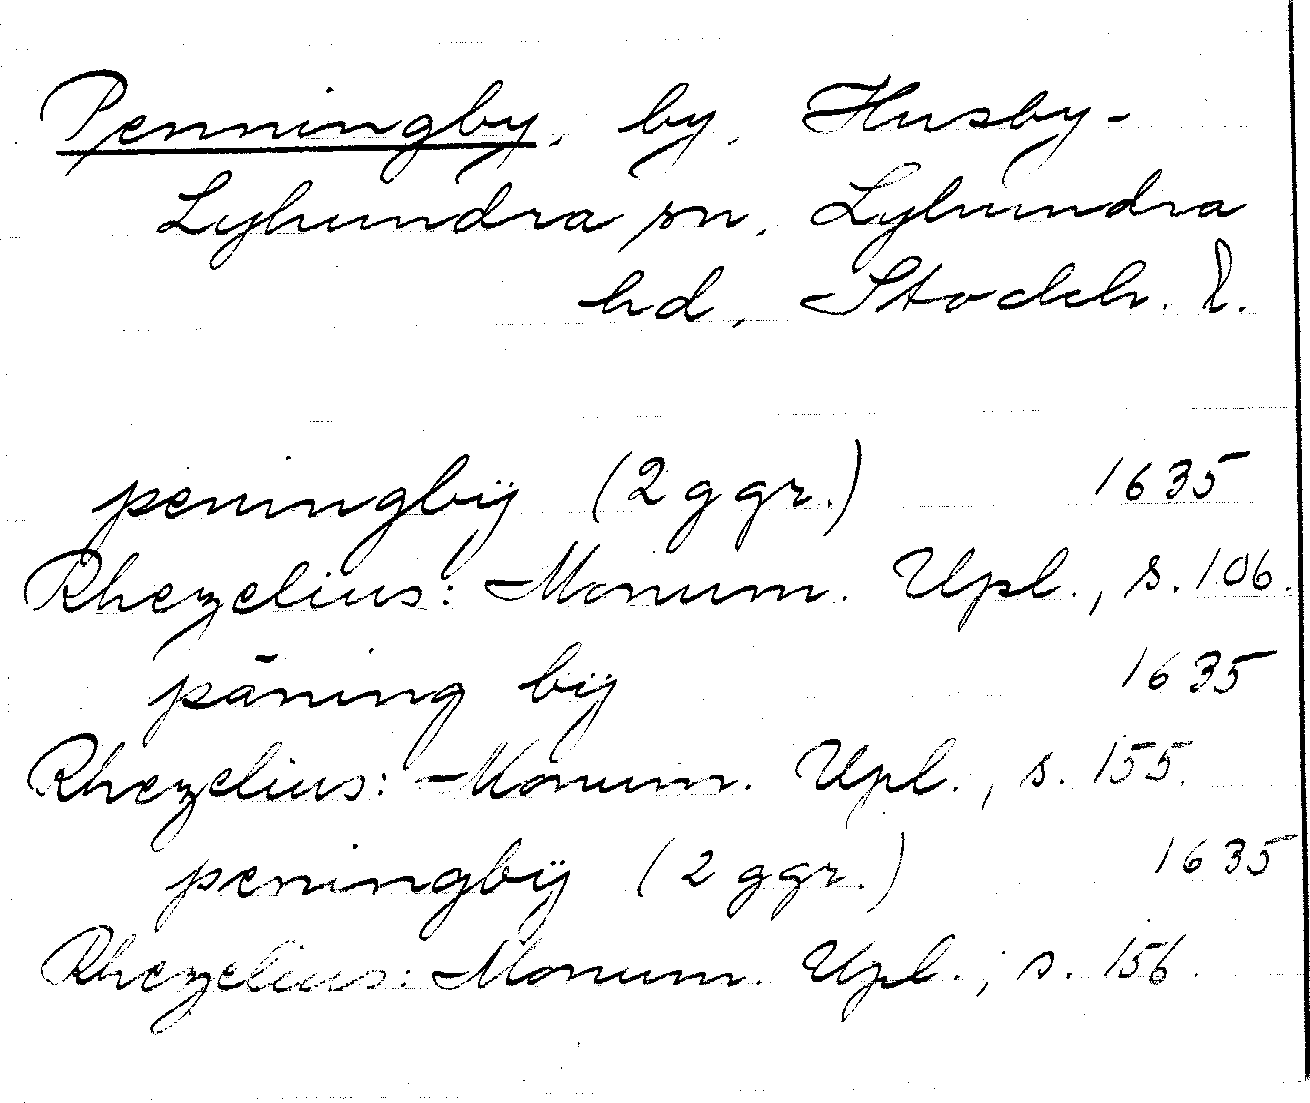 Penningby, by, Husby-
Lyhundra sn, Lyhundra
hd, Stockh. l.
peningbÿ (2 ggr.) 1635
Rhezelius: Monum. Upl., s. 106.
pāning bÿ 1635
Rhezelius: Monum. Upl., s. 155.
peningbÿ (2 ggr.) 1635
Rhezelius: Monum. Upl., s. 156.